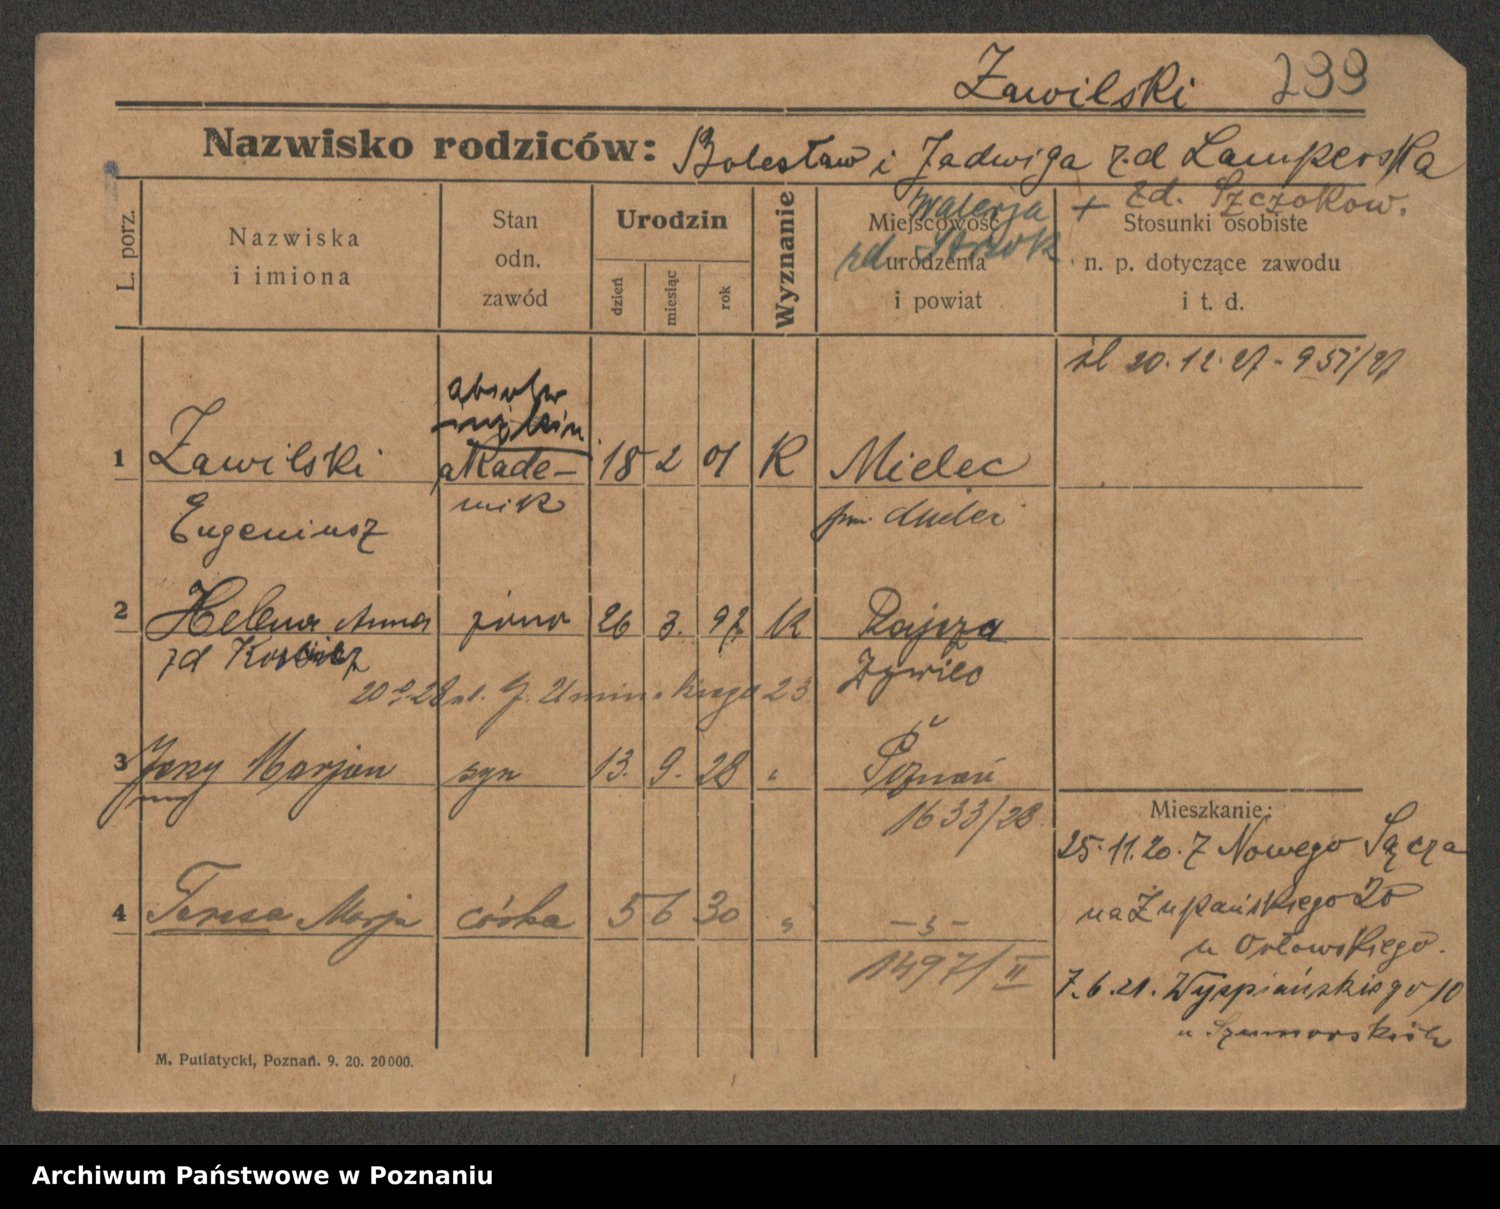 Zawilski 299
Nazwisko rodziców: Bolesław i Jadwiga z.d Lamperska
Walerja + zd. Szczokow.
zd
L. porz.
Nazwiska i imiona
Stan odn. zawód
Urodzin
dzień
miesiąc
rok
Wyznanie
Miejscowość urodzenia i powiat
Stosunki osobiste n. p. dotyczące zawodu i t. d.
śl 20.12.27 - 951/27
absolw
1 Zawilski akade- 18 2 01 K Mielec
Eugeniusz mik
2 Helena Anna żona 26 3. 97 K Rajcza
zd Żywiec
20 9 28 ul. J. Umińskiego 23
3 Jerzy Marjan syn 13. 9. 28 " Poznań
1633/28
Mieszkanie:
25.11.20. Z Nowego Sącza
4 Teresa Marja córka 5 6 30 " - " -
na Żupańskiego 20
u Orłowskiego.
1497/II
7.6.21. Wyspiańskiego 10
u
M. Putiatycki, Poznań. 9. 20. 20000.
Archiwum Państwowe w Poznaniu